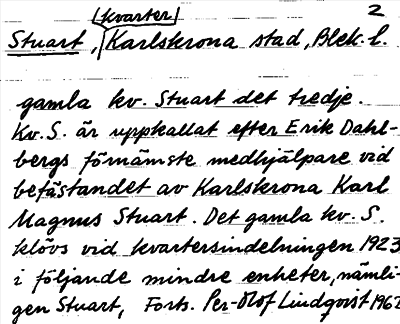 kvarter 2
Stuart, Karlskrona stad, Blek. l.
gamla kv. Stuart det tredje.
Kv. S. är uppkallat efter Erik Dahl-
bergs förnämste medhjälpare vid
befästandet av Karlskrona Karl
Magnus Stuart. Det gamla kv. S.
klövs vid kvartersindelningen 1923
i följande mindre enheter, nämli-
gen Stuart, Forts. Per-Olof Lindqvist 1962